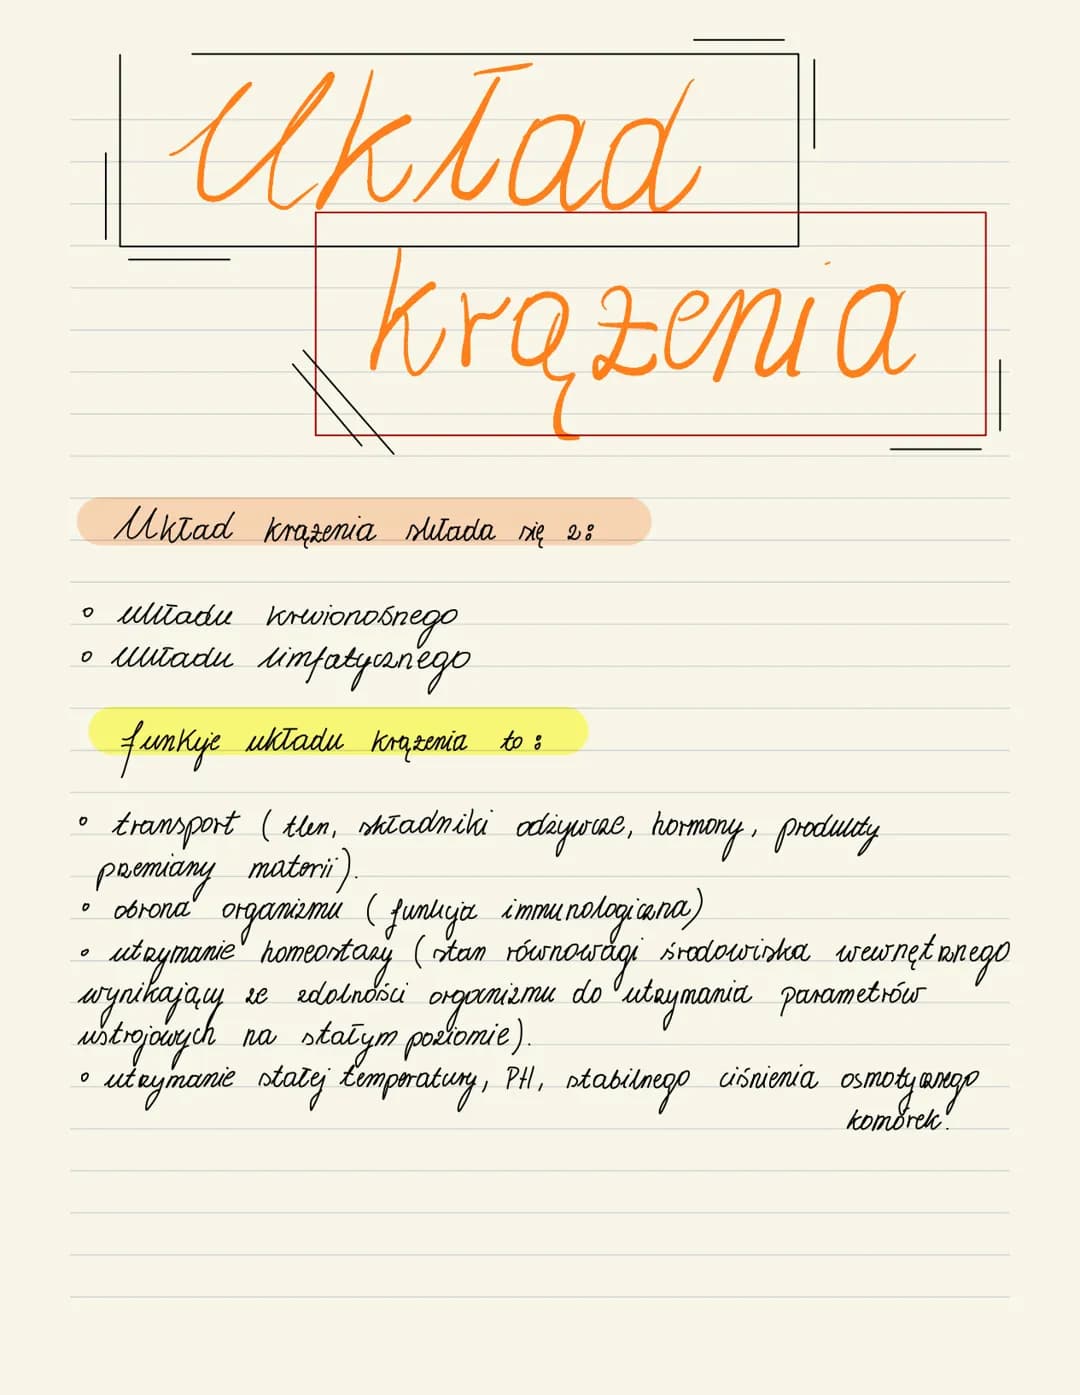 Układ
krążenia
Układ krążenia składa się z:
° układu krwionośnego
° układu limfatycznego
funkcje układu krążenia to:
° transport (tlen, składniki odżywcze, hormony, produkty
przemiany materii).
° obrona organizmu (funkcja immunologiczna)
° utrzymanie homeostazy (stan równowagi środowiska wewnętrznego
wynikający ze zdolności organizmu do utrzymania parametrów
ustrojowych na stałym poziomie).
° utrzymanie stałej temperatury, PH, stabilnego ciśnienia osmotycznego
komórek.